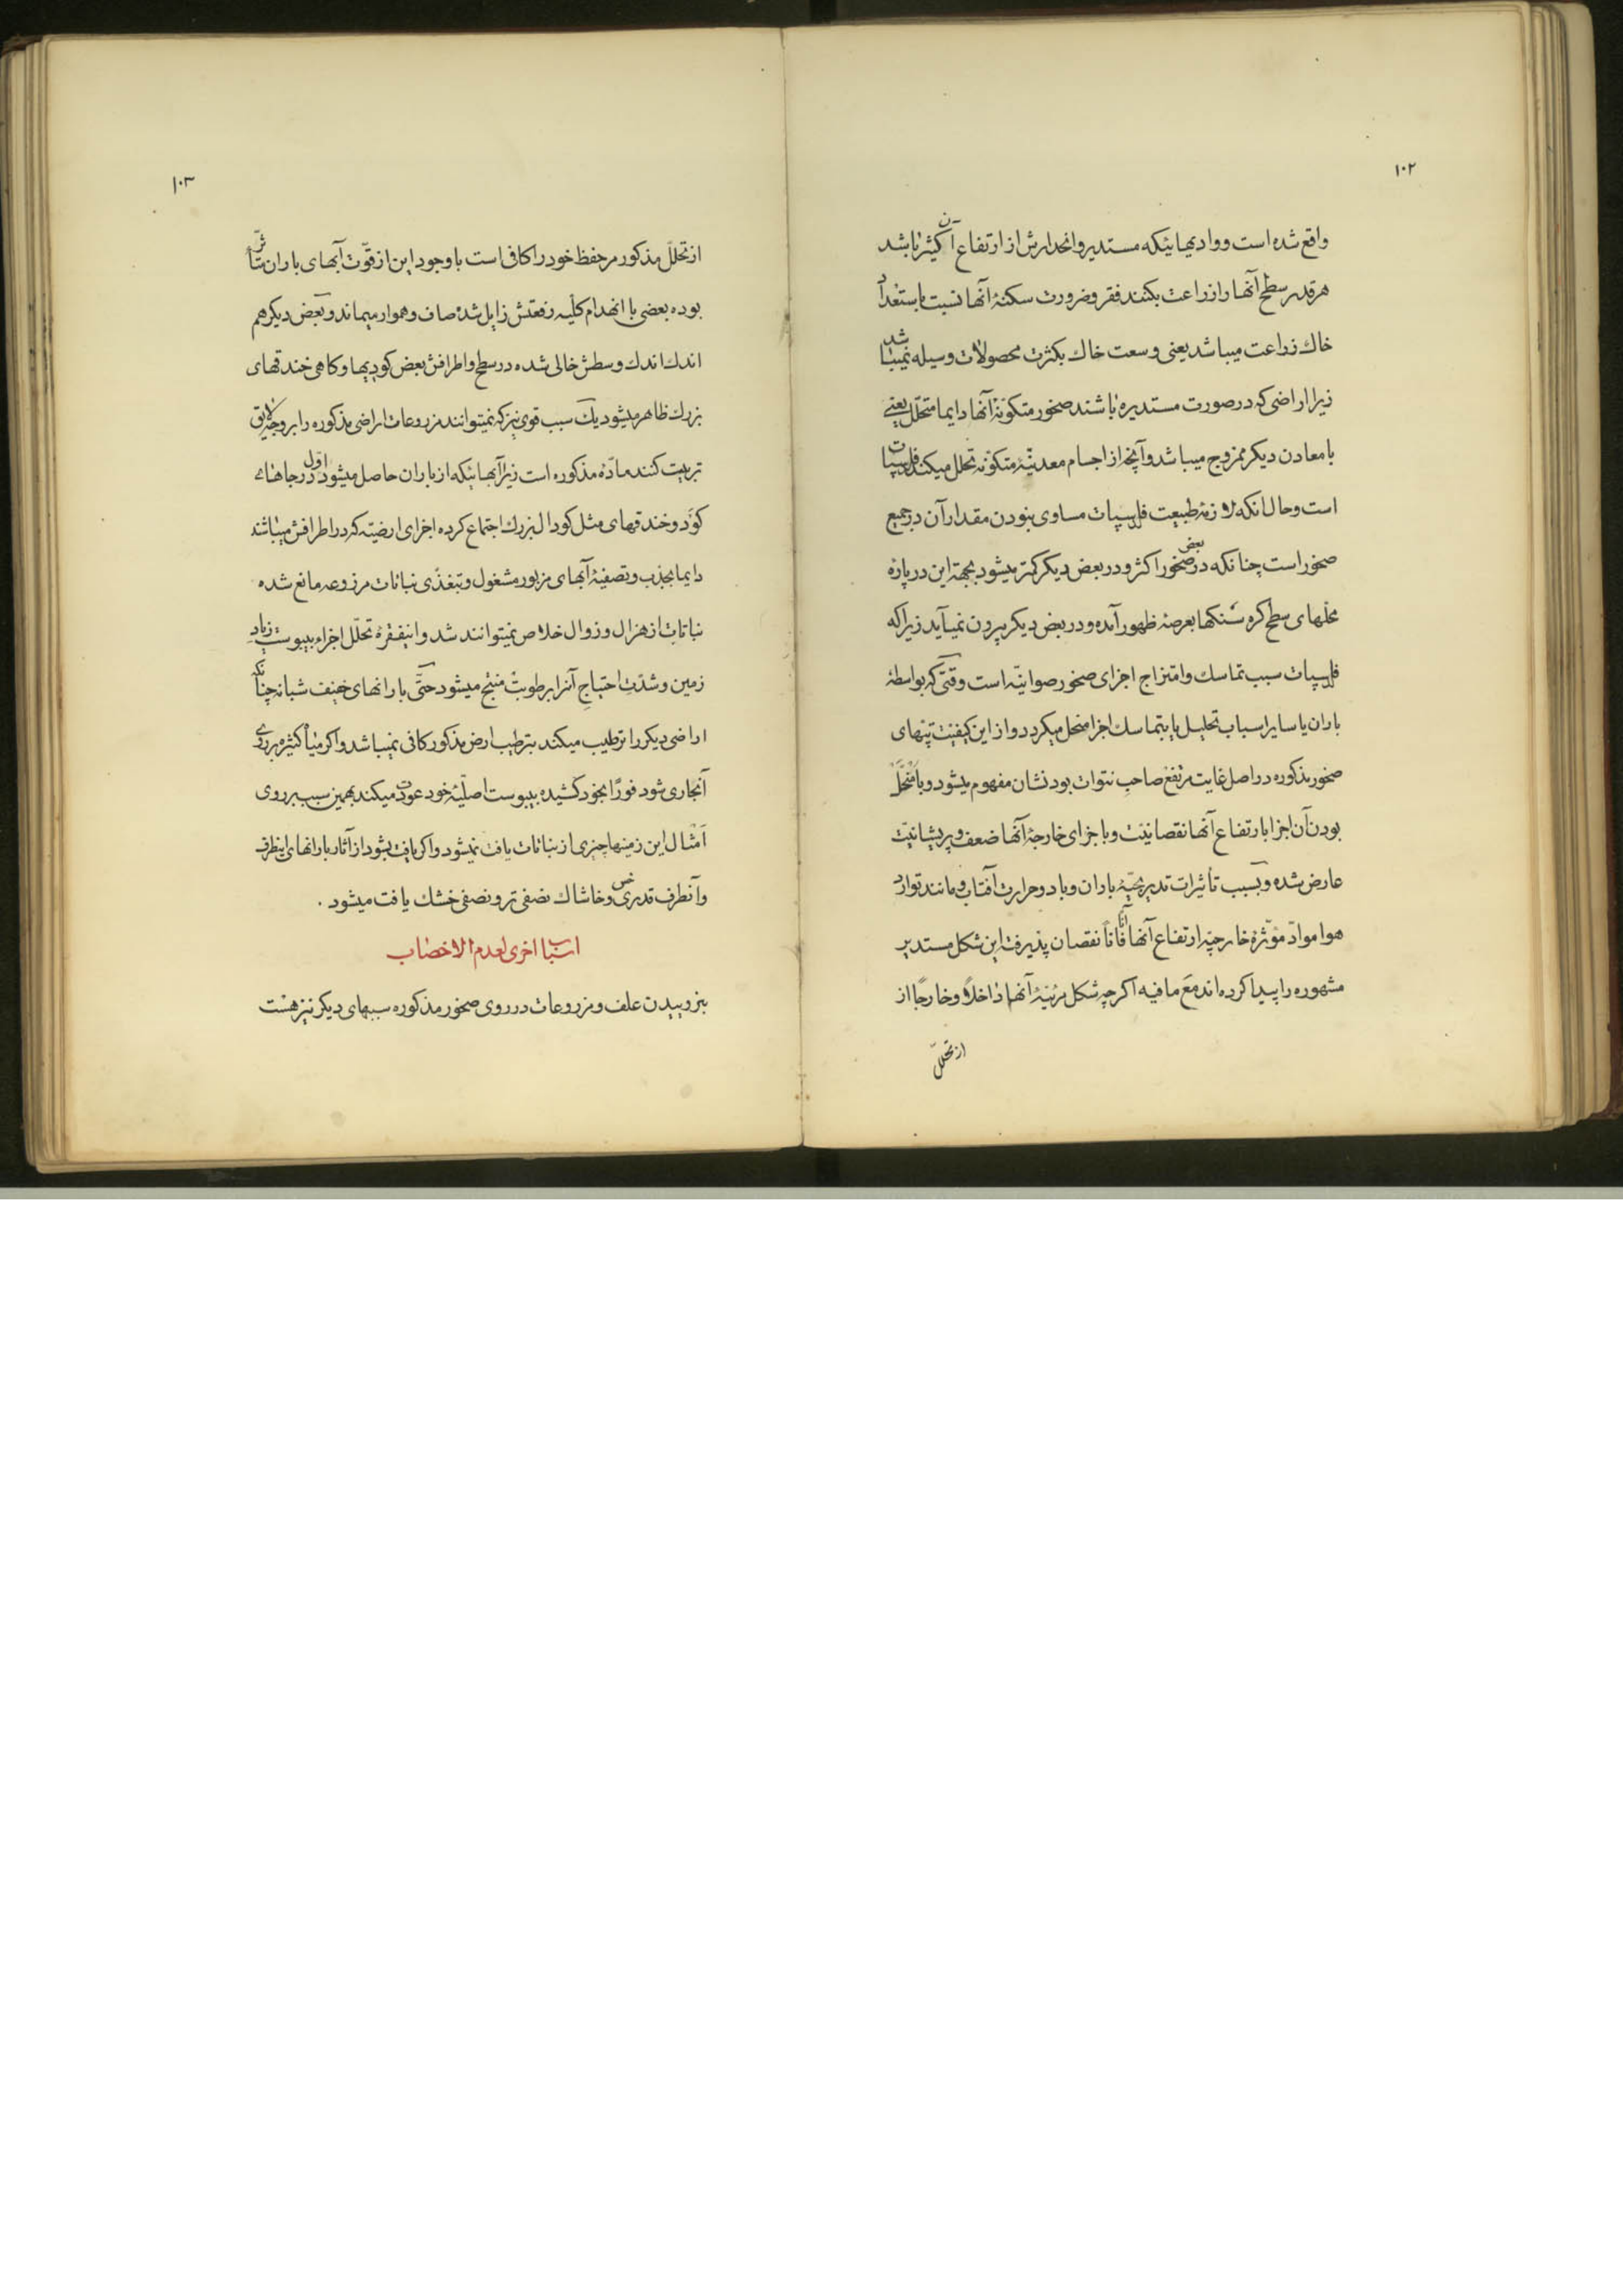 ۱۰۲
واقع شده است و وادیهائیکه مستدیر و انحدارش از ارتفاع آن کثیر باشد
هر قدر سطح آنها را زراعت بکنند فقر و ضرورت سکنهٔ آنها نسبت باستعداد
خاك زراعت میباشد یعنی وسعت خاك بکثرت محصولات وسیله نمیباشد
زیرا اراضی که در صورت مستدیره باشند صخور متکونهٔ آنها دایما متحلّل یعنے
با معادن دیکر ممزوج میباشد و آنچه از اجسام معدنیّهٔ متکوّنه تحلل میکند فلسپات
است و حال انکه لازمهٔ طبیعت فلسپات مساوی نبودن مقدار آن در جمیع
صخور است چنانکه در بعض صخور اکثر و در بعض دیکر کمتر میشود بجهة این در پارهٔ
محلهای سطح کره سنکها بعرصهٔ ظهور آمده و در بعض دیکر بیرون نمیآید زیرا که
فلسپات سبب تماسك و امتزاج اجزای صخور صوانیّه است وقتی که بواسطهٔ
باران یا سایر اسباب تحلیل یابد تماسك اجزا منحل میکردد و از این کیفیّت تپّهای
صخور مذکوره در اصل غایت مرتفع صاحب نتوات بودنشان مفهوم میشود و با منحلّ
بودن آن اجزا بارتفاع آنها نقصانیّت و باجزای خارجهٔ آنها ضعف و پریشانیّت
عارض شده و بسبب تأثیرات تدریجیّهٔ باران و باد و حرارت آفتاب و مانند توارد
هوا موادّ مؤثرهٔ خارجیّه ارتفاع آنها آناً فآناً نقصان پذیرفته این شکل مستدیر
مشهوره را پیدا کرده اند مع ما فیه اکرچه شکل مرئیهٔ آنها داخلاً و خارجًا از
از تحلل
۱۰۳
از تحلّل مذکور مر حفظ خود را کافی است با وجود این از قوّت آبهای باران متأثّر
بوده بعضی با انهدام کلّیه رفعتش زایل شده صاف و هموار میماند و بعض دیکر هم
اندك اندك وسطش خالی شده در سطح و اطرافش بعض کودیها و کاهی خندقهای
بزرك ظاهر میشود یك سبب قوی نیز که نمیتوانند مزروعات اراضی مذکوره را بر وجه لایق
تربیت کنند مادّهٔ مذکوره است زیرا آبهائیکه از باران حاصل میشود اول در جاهاے
کود و خندقهای مثل کودال بزرك اجتماع کرده اجزای ارضیّه که در اطرافش میباشد
دایما بجذب و تصفیهٔ آبهای مزبور مشغول و بتغذّی نباتات مزروعه مانع شده
نباتات از هزال و زوال خلاص نمیتوانند شد و اینفقرهٔ تحلّل اجزاء بیبوست زیاد
زمین و شدّت احتیاج آنرا برطوبت منتج میشود حتّی بارانهای خفیف شبانه چنانکه
اراضی دیکر را ترطیب میکند بترطیب ارض مذکور کافی نمیباشد و اکر میاه کثیره بر روی
آن جاری شود فورًا بخود کشیده بیبوست اصلیّهٔ خود عودت میکند بهمین سبب بر روی
امثال این زمینها چیزی از نباتات یافت نمیشود و اکر یافت بشود از آثار بارانهای اینطرف
و آنطرف قدری خس و خاشاك نصفی تر و نصفی خشك یافت میشود .
اسباب اخری لعدم الاخصاب
بنروییدن علف و مزروعات در روی صخور مذکوره سببهای دیکر نیز هست